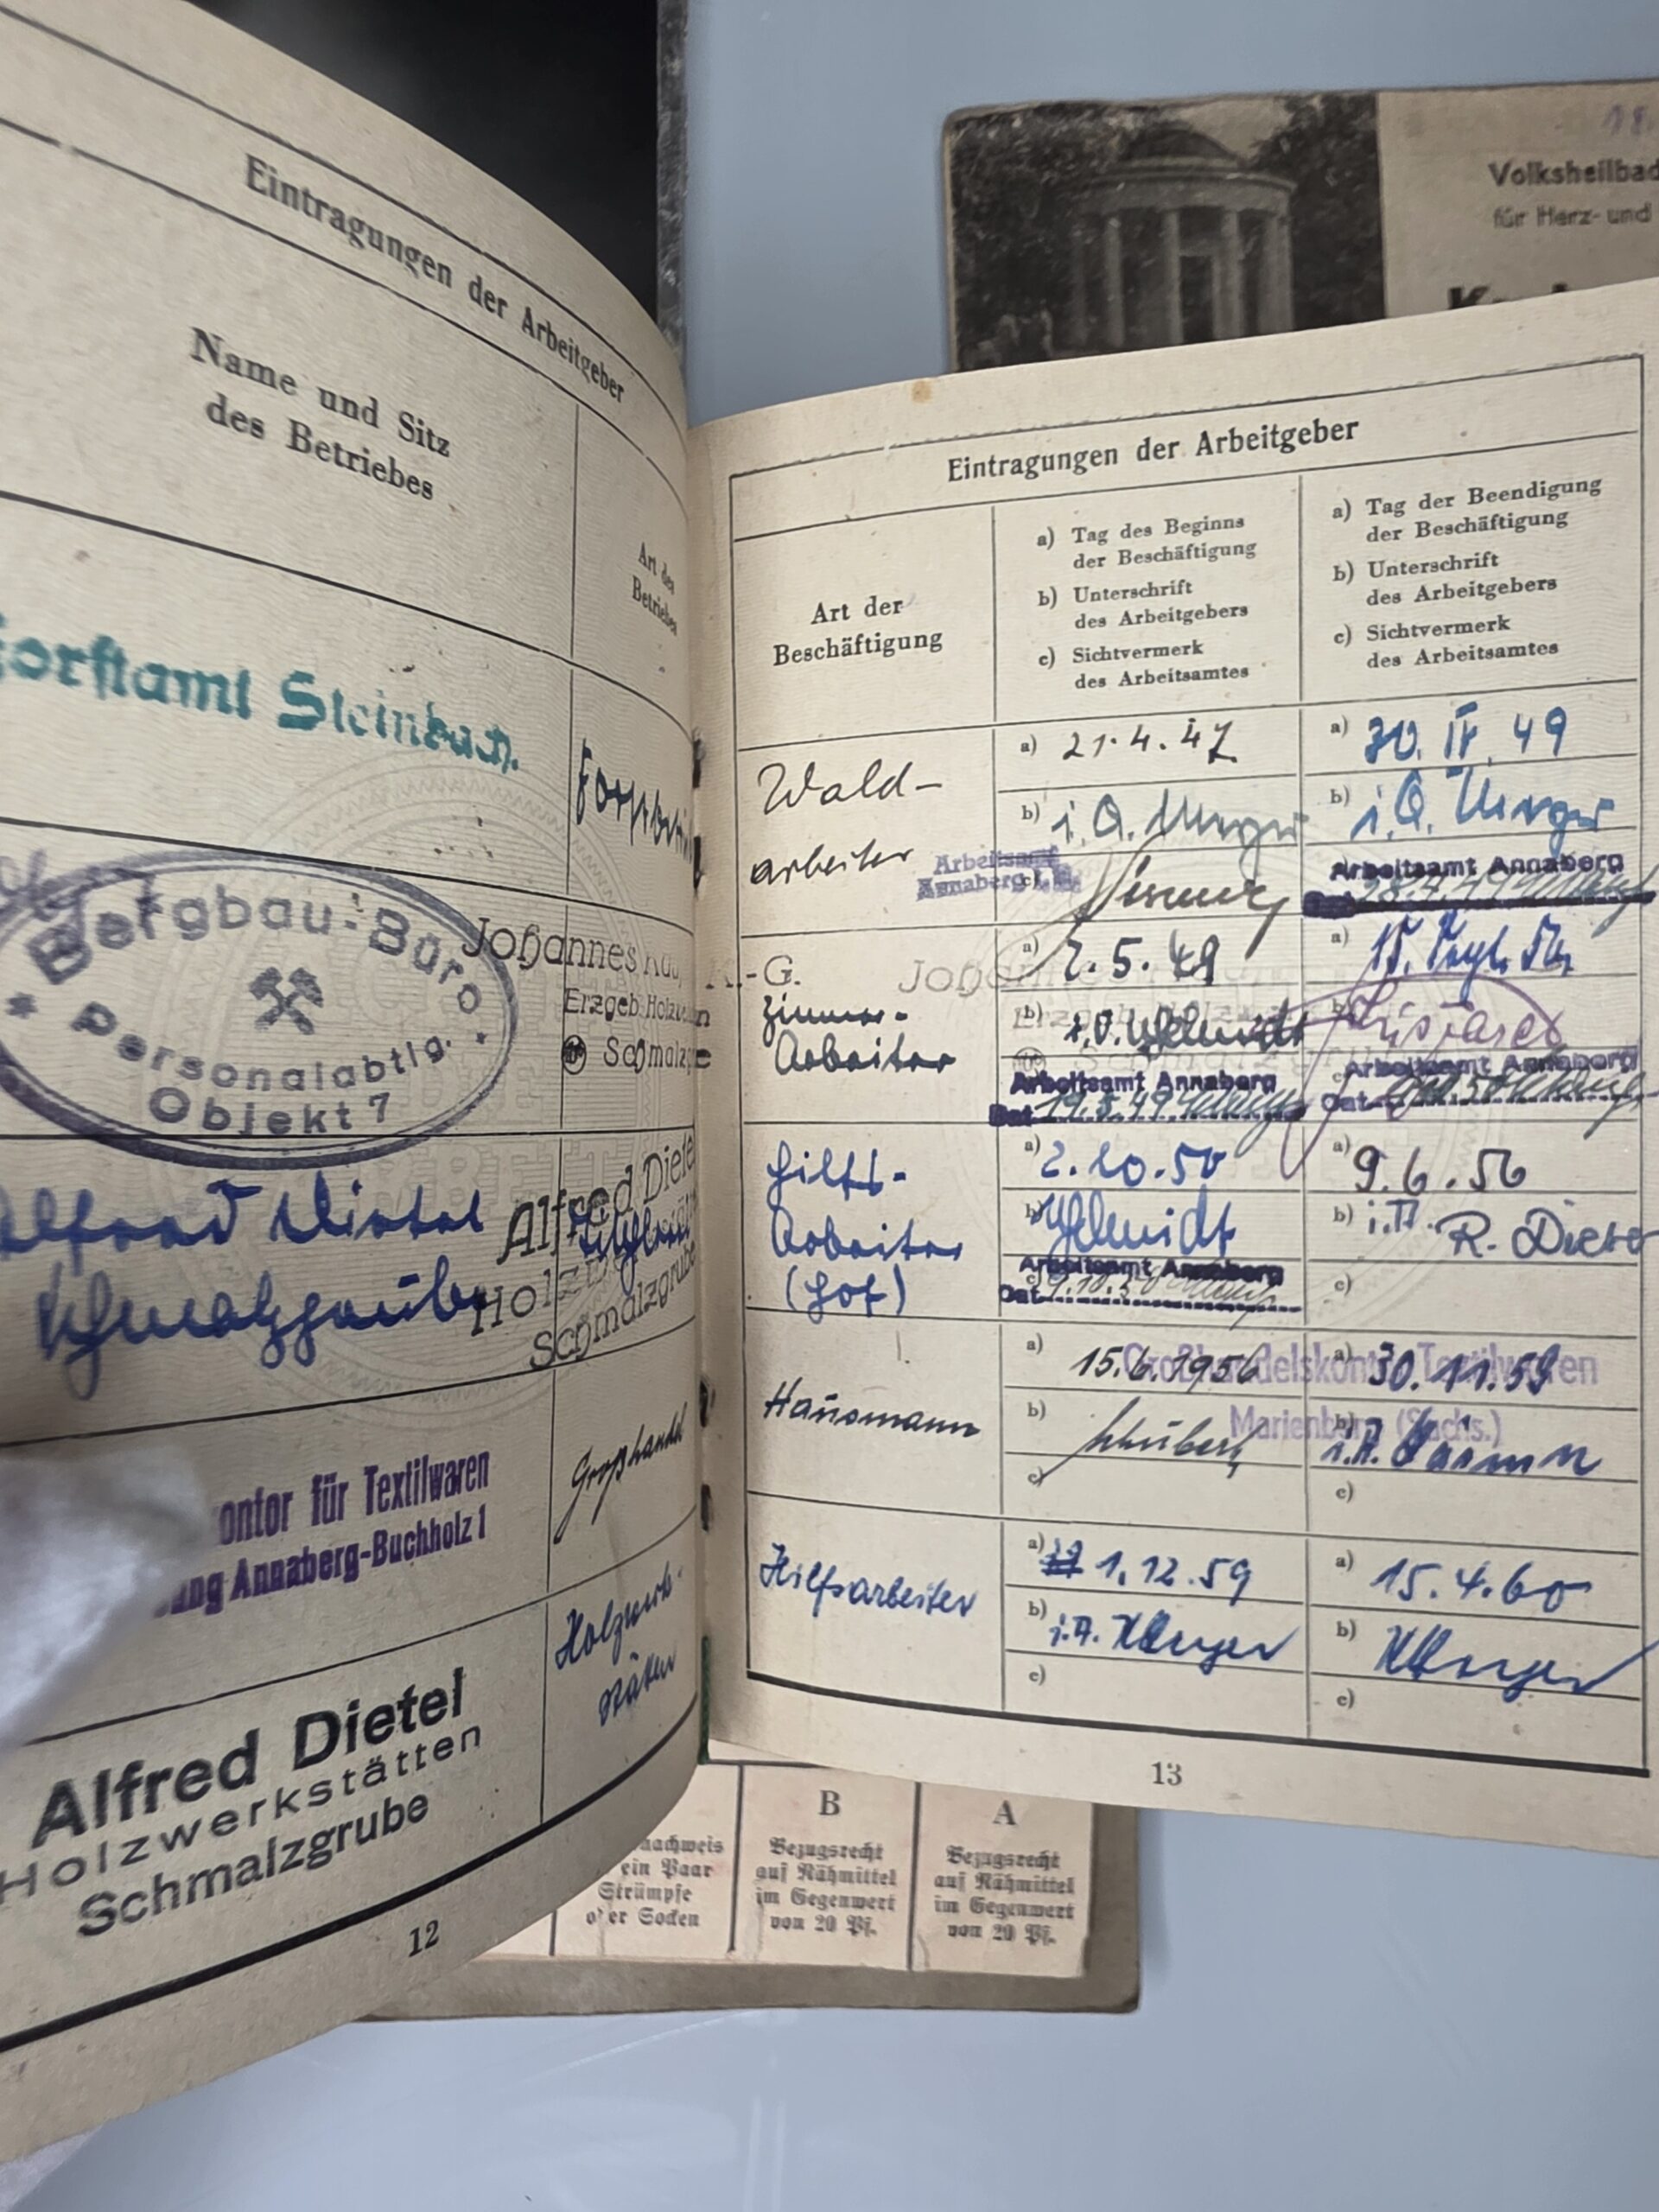 Eintragungen der Arbeitgeber
Name und Sitz
des Betriebes
Art des
Betriebes
Forstamt Steinbach.
Bergbau-Büro
Personalabtlg.
Objekt 7
Johannes
Erzgeb. Holzwaren
Schmalzgrube
Alfred Dietel
Schmalzgrube
Alfred Dietel
Holz
Schmalzgrube
ontor für Textilwaren
ung Annaberg-Buchholz 1
Großhandel
Alfred Dietel
Holzwerkstätten
Schmalzgrube
Holzwerk-
stätten
12
Eintragungen der Arbeitgeber
Art der
Beschäftigung
a) Tag des Beginns
der Beschäftigung
b) Unterschrift
des Arbeitgebers
c) Sichtvermerk
des Arbeitsamtes
a) Tag der Beendigung
der Beschäftigung
b) Unterschrift
des Arbeitgebers
c) Sichtvermerk
des Arbeitsamtes
Wald-
arbeiter
a) 21.4.47
b) i.A.
Arbeitsamt
Annaberg
a) 30. IV. 49
b) i.A.
Arbeitsamt Annaberg
K.-G.
Arbeiter
a) 2.5.49
b) Schmidt
Arbeitsamt Annaberg
Dat. 19.5.49
a) 15. Sept. 50
b)
Arbeitsamt Annaberg
Dat.
Hilfs-
Arbeiter
(Hof)
a) 2.10.50
b) Schmidt
Arbeitsamt Annaberg
Dat. 9.10.50
a) 9.6.56
b) i.A. R. Dietel
c)
Hausmann
a) 15.6.1956
b) Schubert
c)
Großhandelskontor Textilwaren
Marienberg (Sachs.)
a) 30.11.59
b) i.A.
c)
Hilfsarbeiter
a) 1.12.59
b) i.A.
c)
a) 15.4.60
b)
c)
13
18.
Volksheilbad
für Herz- und
nachweis
ein Paar
Strümpfe
oder Socken
B
Bezugsrecht
auf Nähmittel
im Gegenwert
von 20 Pf.
A
Bezugsrecht
auf Nähmittel
im Gegenwert
von 20 Pf.